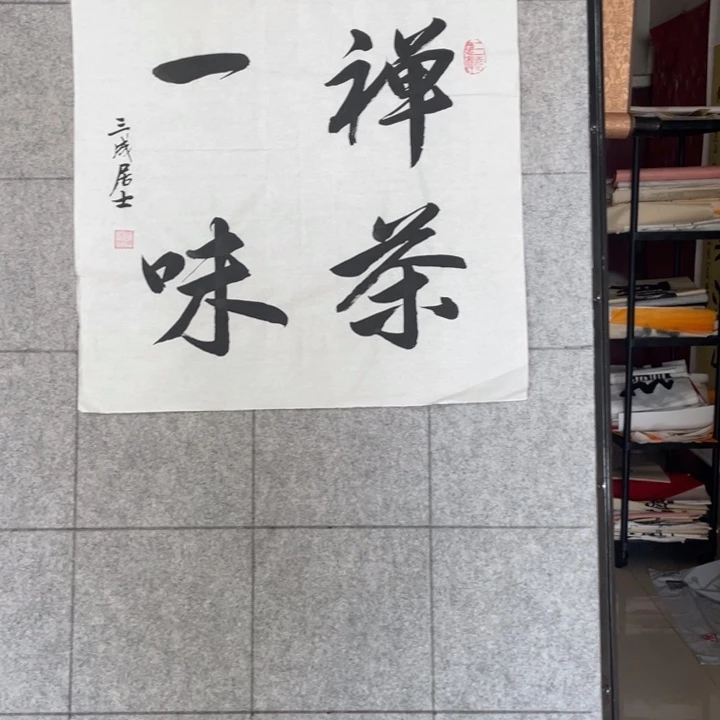 禅茶
一味
三成居士